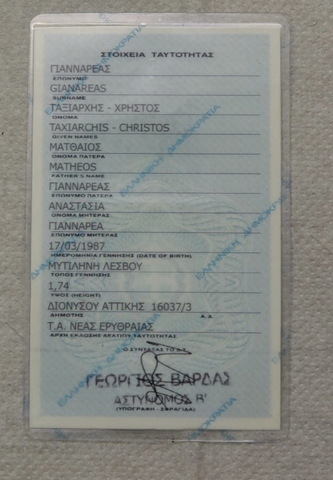 ΣΤΟΙΧΕΙΑ ΤΑΥΤΟΤΗΤΑΣ
ΓΙΑΝΝΑΡΕΑΣ
ΕΠΩΝΥΜΟ
GIANAREAS
SURNAME
ΤΑΞΙΑΡΧΗΣ - ΧΡΗΣΤΟΣ
ΟΝΟΜΑ
TAXIARCHIS - CHRISTOS
GIVEN NAMES
ΜΑΤΘΑΙΟΣ
ΟΝΟΜΑ ΠΑΤΕΡΑ
MATHEOS
FATHER'S NAME
ΓΙΑΝΝΑΡΕΑΣ
ΕΠΩΝΥΜΟ ΠΑΤΕΡΑ
ΑΝΑΣΤΑΣΙΑ
ΟΝΟΜΑ ΜΗΤΕΡΑΣ
ΓΙΑΝΝΑΡΕΑ
ΕΠΩΝΥΜΟ ΜΗΤΕΡΑΣ
17/03/1987
ΗΜΕΡΟΜΗΝΙΑ ΓΕΝΝΗΣΗΣ (DATE OF BIRTH)
ΜΥΤΙΛΗΝΗ ΛΕΣΒΟΥ
ΤΟΠΟΣ ΓΕΝΝΗΣΗΣ
1,74
ΥΨΟΣ (HEIGHT)
ΔΙΟΝΥΣΟΥ ΑΤΤΙΚΗΣ 16037/3
ΔΗΜΟΤΗΣ Α.Δ.
Τ.Α. ΝΕΑΣ ΕΡΥΘΡΑΙΑΣ
ΑΡΧΗ ΕΚΔΟΣΗΣ ΔΕΛΤΙΟΥ ΤΑΥΤΟΤΗΤΑΣ
Ο ΣΥΝΤΑΞΑΣ ΤΟ Δ.Τ.
ΓΕΩΡΓΙΟΣ ΒΑΡΔΑΣ
ΑΣΤΥΝΟΜΟΣ Β'
(ΥΠΟΓΡΑΦΗ - ΣΦΡΑΓΙΔΑ)
ΕΛΛΗΝΙΚΗ ΔΗΜΟΚΡΑΤΙΑ